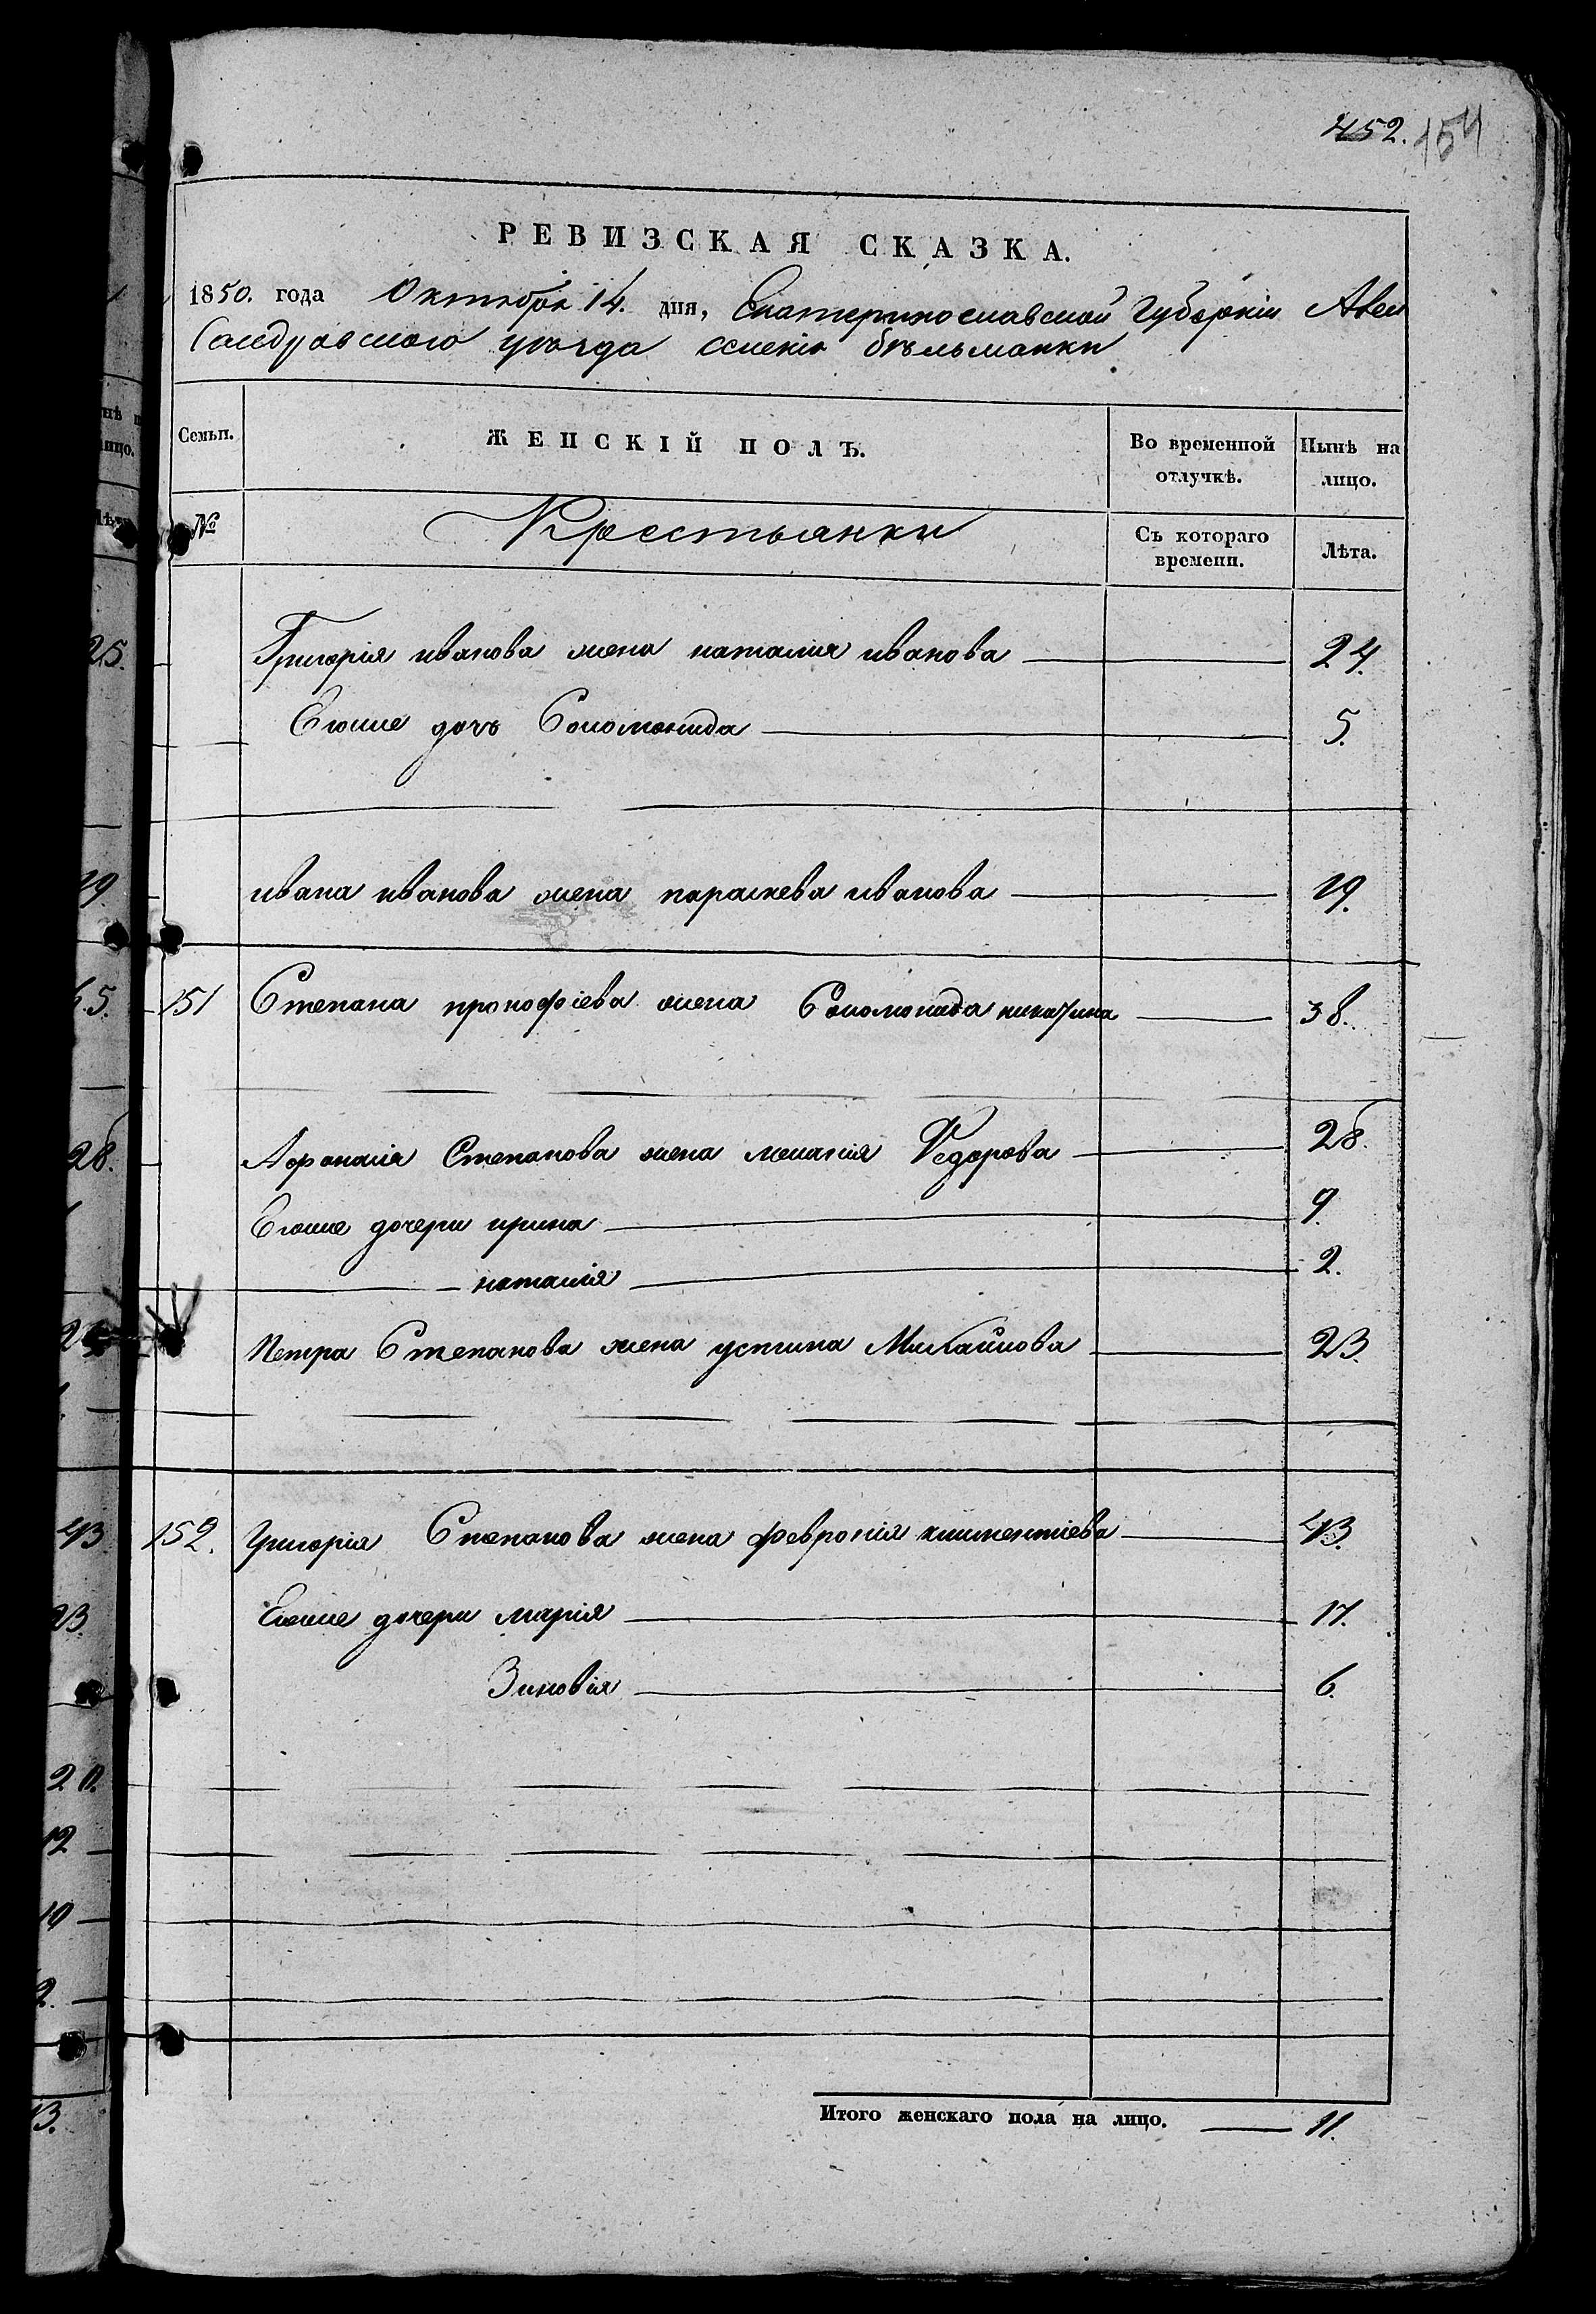 452. 154
РЕВИЗСКАЯ СКАЗКА.
1850. года Октября 14. дня, Екатеринославской Губерніи Алек
сандровскаго уѣзда селенія бѣльманки
Семьи. ЖЕНСКІЙ ПОЛЪ. Во временной отлучкѣ. Нынѣ на лицо.
№ Крестьянки Съ котораго времени. Лѣта.
Григорія иванова жена наталия иванова 24.
Егоже дочь Соломонида 5.
ивана иванова жена параскева иванова 19.
151 Степана прокофіева жена Соломонида никитина 38.
Афанасія Степанова жена меланія Федорова 28.
Егоже дочери ирина 9.
наталія 2.
Петра Степанова жена устина Михайлова 23.
152. григорія Степанова жена февронія климентіева 43.
Егоже дочери марія 17.
Зиновія 6.
Итого женскаго пола на лицо. 11.